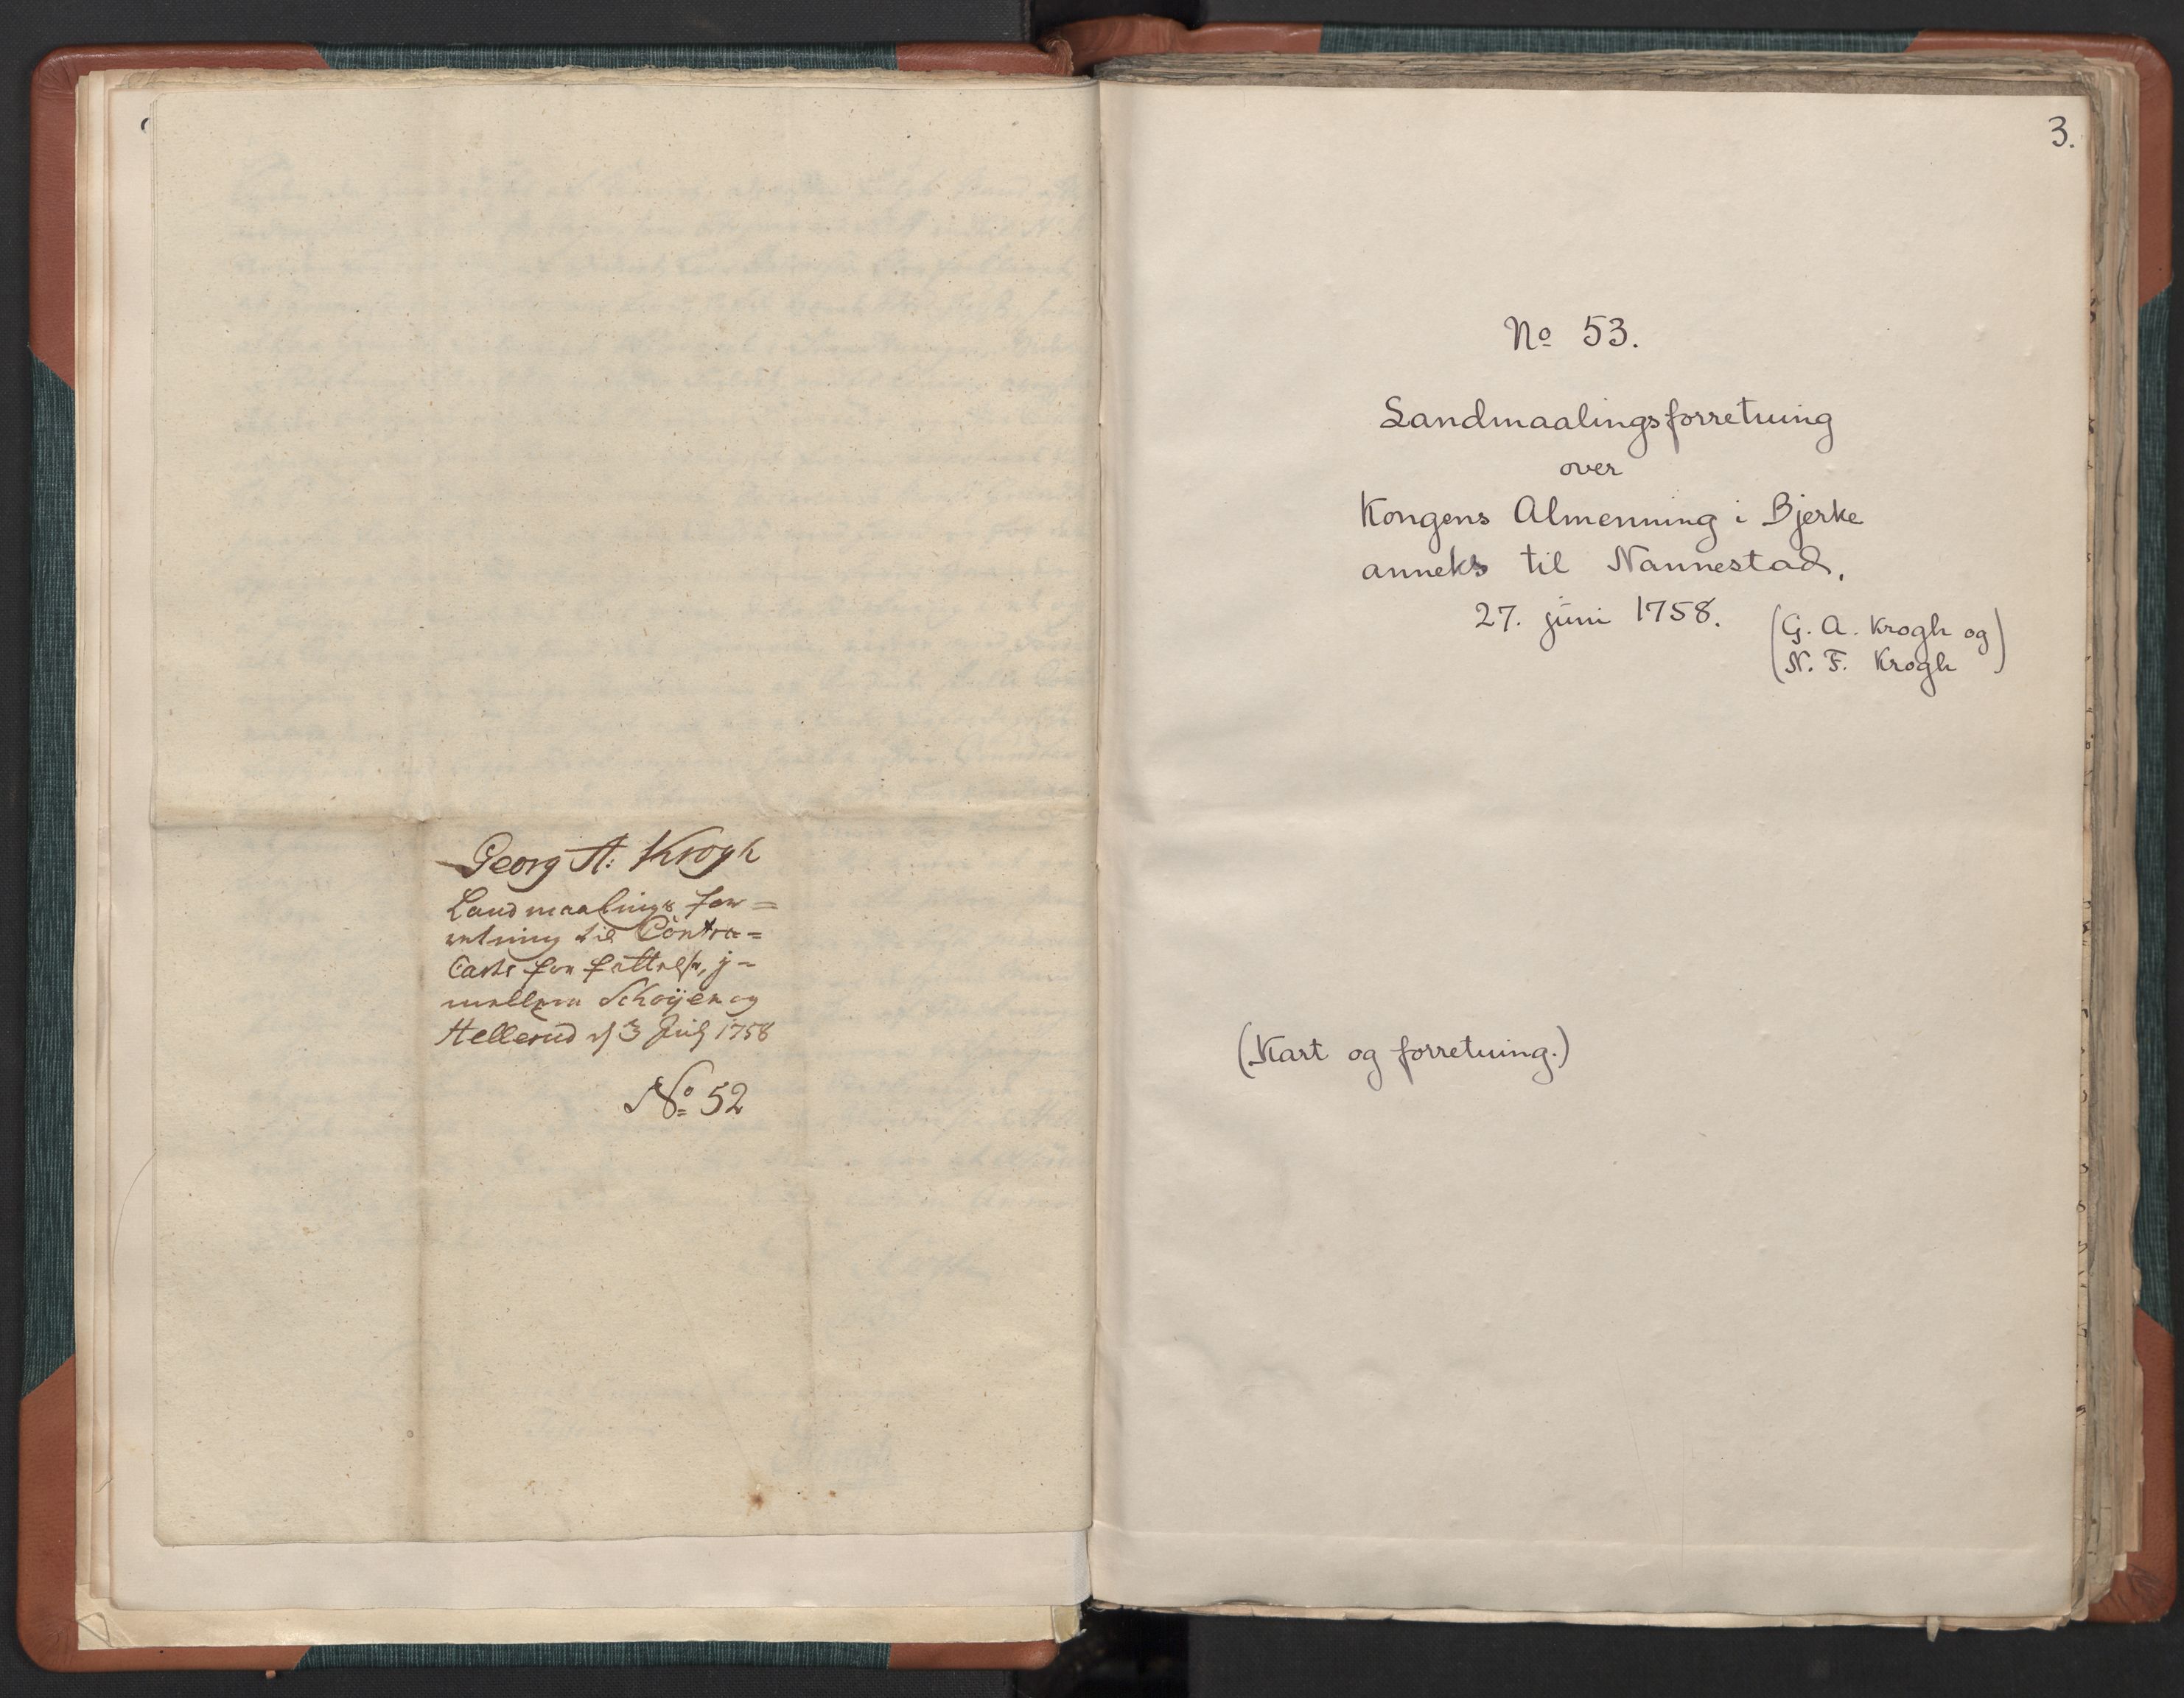 Georg A: Krogh
Landmaalings for=
retning til Contra=
Carte forfattelse, i=
mellem Schøyen og
Hellerud d 3 July 1758
No 52
3.
No 53.
Landmaalingsforretning
over
Kongens Almenning i Bjerke
anneks til Nannestad.
27. juni 1758.
(G. A. Krogh og
N. F. Krogh)
(Kart og forretning.)